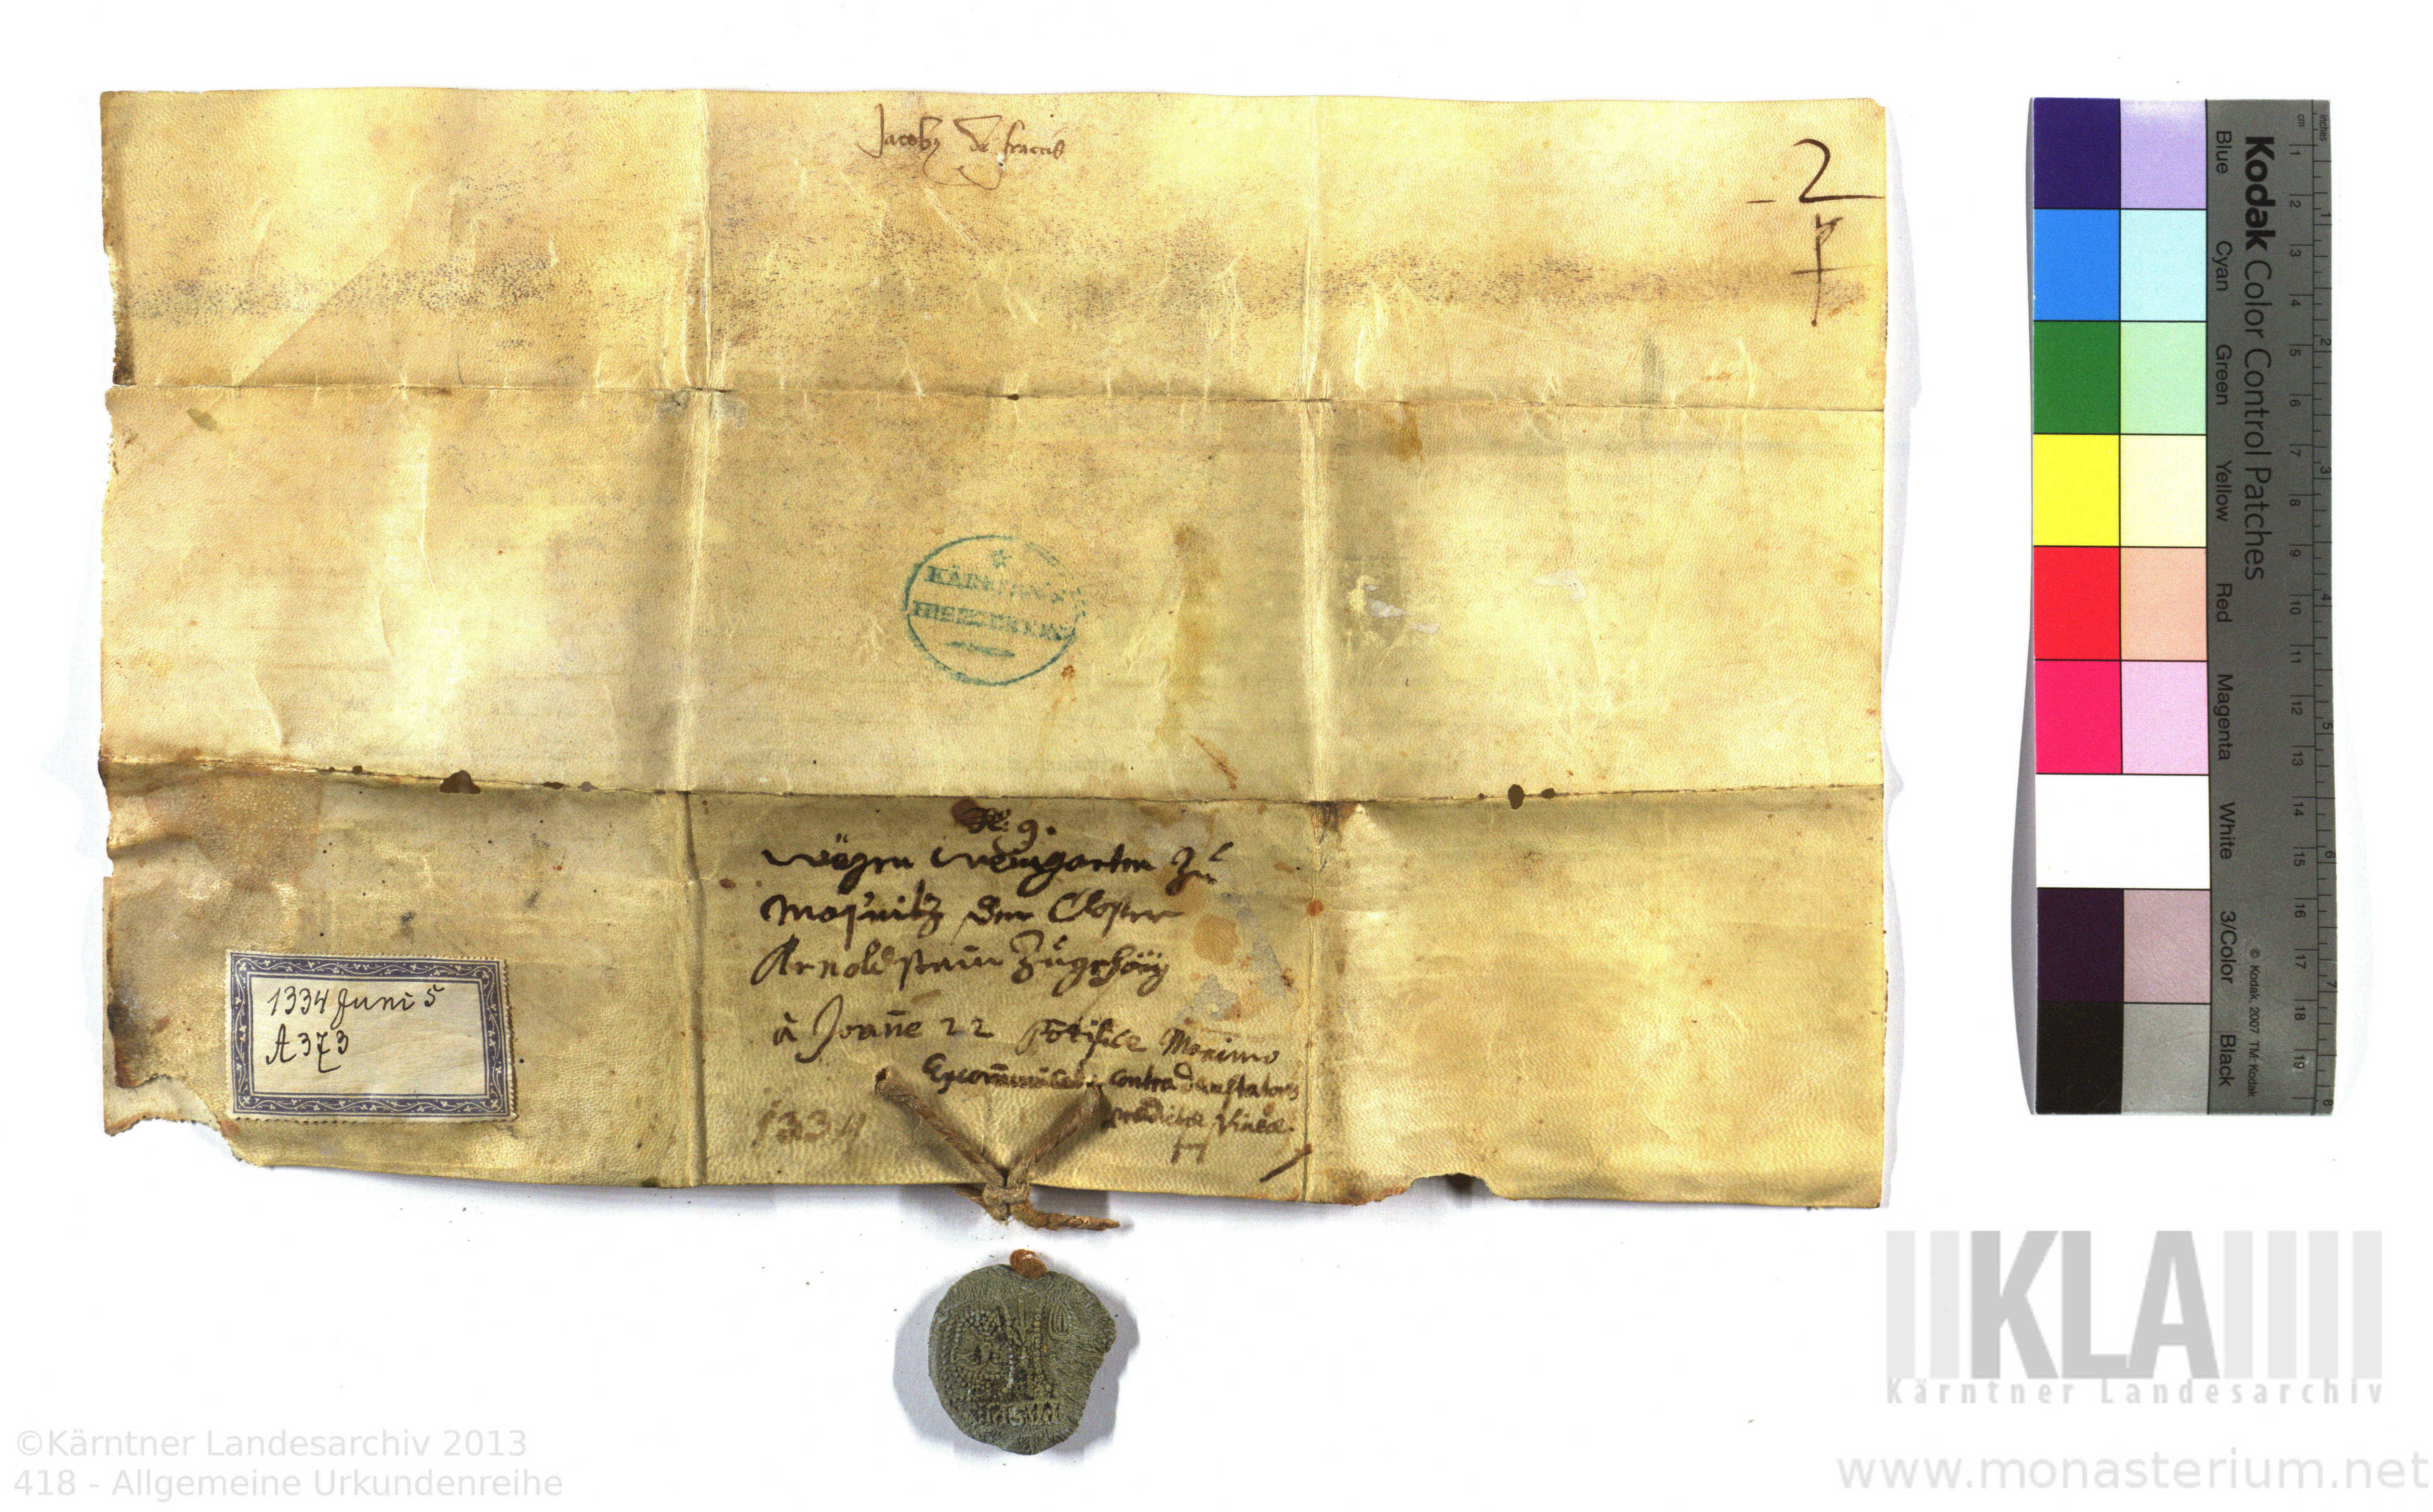 Jacobus de
2
No. 9.
wögen Weingarten Zu
den Closter
Arnoldstain Zugehörig
à Joañe 22 Potifice Maximo
contra deuastatores
praedictae Vineae.
1334
1334 Juni 5
A 373
Kodak Color Control Patches
Blue Cyan Green Yellow Red Magenta White 3/Color Black
© Kodak, 2007 TM: Kodak
cm 1 2 3 4 5 6 7 8 9 10 11 12 13 14 15 16 17 18 19
inches 1 2 3 4 5 6 7 8
KLA
Kärntner Landesarchiv
©Kärntner Landesarchiv 2013
418 - Allgemeine Urkundenreihe
www.monasterium.net